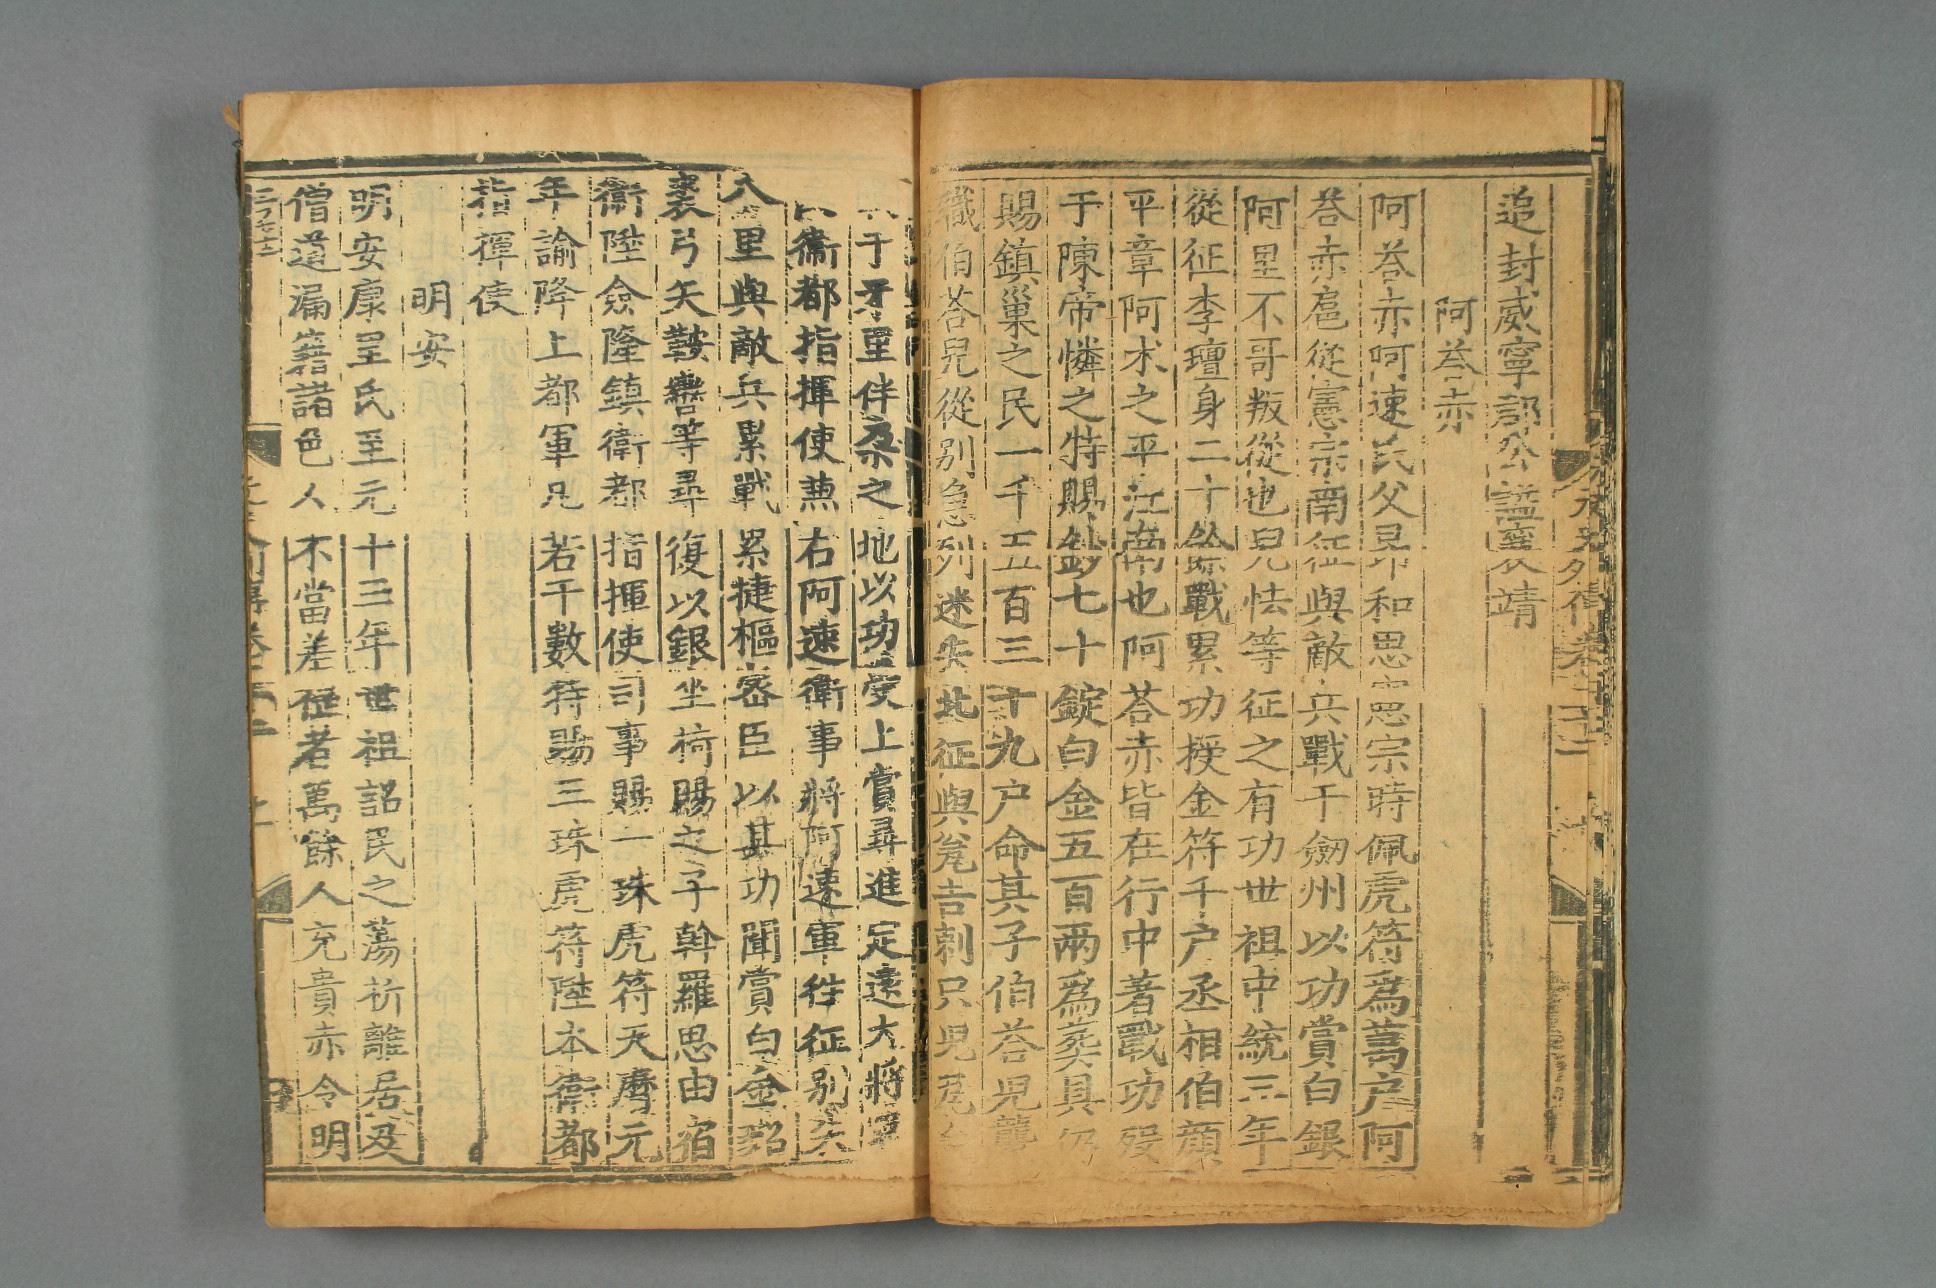 追封威寧郡公謚襄靖
阿荅赤
阿荅赤阿速氏父昻和思憲宗時佩虎符爲萬户阿
荅赤扈從憲宗南征與敵兵戰于劒州以功賞白銀
阿里不哥叛從也兒怯等征之有功世祖中統三年
從征李璮身二十餘戰累功授金符千户丞相伯顔
平章阿术之平江南也阿荅赤皆在行中著戰功殁
于陳帝憐之特賜鈔七十錠白金五百兩爲葬具仍
賜鎮巢之民一千五百三十九户命其子伯荅兒襲
職伯荅兒從别急列迷失北征與瓮吉剌只兒瓦
于牙里伴朶之地以功受上賞尋進定遠大將軍
衞都指揮使兼右阿速衛事將阿速軍往征别失
八里與敵兵累戰累捷樞密臣以其功聞賞白金貂
裘弓矢鞍轡等尋復以銀坐椅賜之子斡羅思由宿
衛陞僉隆鎮衛都指揮使司事賜一珠虎符天曆元
年諭降上都軍凡若干數符賜三珠虎符陞本衛都
指揮使
明安
明安康里氏至元十三年世祖詔民之蕩析離居及
僧道漏籍諸色人不當差徭者萬餘人充貴赤令明